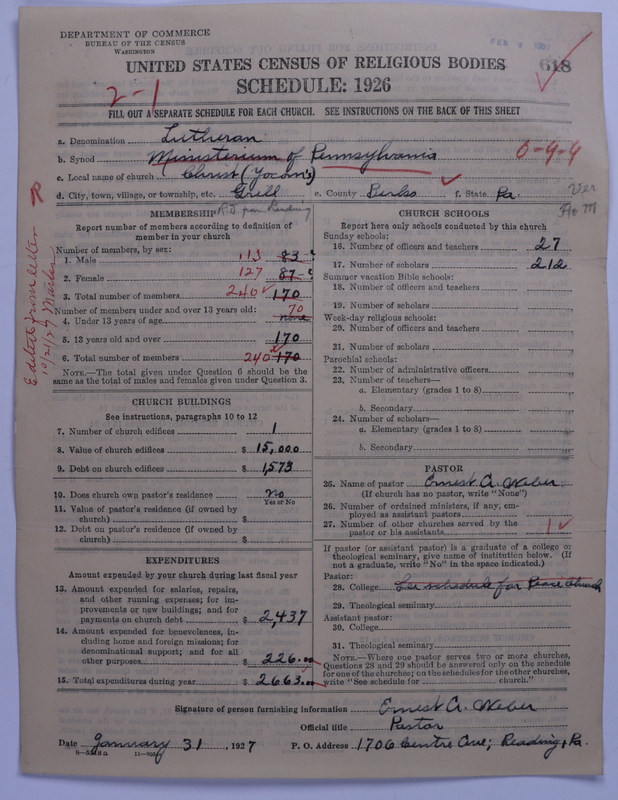 DEPARTMENT OF COMMERCE
BUREAU OF THE CENSUS
WASHINGTON
UNITED STATES CENSUS OF RELIGIOUS BODIES
618
SCHEDULE: 1926
2-1
FILL OUT A SEPARATE SCHEDULE FOR EACH CHURCH. SEE INSTRUCTIONS ON THE BACK OF THIS SHEET
a. Denomination Lutheran
b. Synod Ministerium of Pennsylvania
0-9-9
c. Local name of church Christ (Yocom's)
d. City, town, village, or township, etc. Grill e. County Berks f. State Pa.
Ver
R.D. from Reading
MEMBERSHIP
Report number of members according to definition of
member in your church
Number of members, by sex:
1. Male 113 83
2. Female 127 87
3. Total number of members 240 170
Number of members under and over 13 years old:
4. Under 13 years of age 70 none
5. 13 years old and over 170
6. Total number of members 240 170
NOTE.—The total given under Question 6 should be
same as the total of males and females given under Question 3.
Edited from letter
10/21/27
CHURCH BUILDINGS
See instructions, paragraphs 10 to 12
7. Number of church edifices 1
8. Value of church edifices $ 15,000
9. Debt on church edifices $ 1,573
10. Does church own pastor's residence no
Yes or No
11. Value of pastor's residence (if owned by
church) $
12. Debt on pastor's residence (if owned by
church) $
EXPENDITURES
Amount expended by your church during last fiscal year
13. Amount expended for salaries, repairs,
and other running expenses; for im-
provements or new buildings; and for
payments on church debt $ 2,437
14. Amount expended for benevolences, in-
cluding home and foreign missions; for
denominational support; and for all
other purposes $ 226.00
15. Total expenditures during year $ 2663.00
CHURCH SCHOOLS
Report here only schools conducted by this church
Sunday schools:
16. Number of officers and teachers 27
17. Number of scholars 212
Summer vacation Bible schools:
18. Number of officers and teachers
19. Number of scholars
Week-day religious schools:
20. Number of officers and teachers
21. Number of scholars
Parochial schools:
22. Number of administrative officers
23. Number of teachers—
a. Elementary (grades 1 to 8)
b. Secondary
24. Number of scholars—
a. Elementary (grades 1 to 8)
b. Secondary
PASTOR
25. Name of pastor Ernest A. Weber
(If church has no pastor, write "None")
26. Number of ordained ministers, if any, em-
ployed as assistant pastors
27. Number of other churches served by the
pastor or his assistants 1
If pastor (or assistant pastor) is a graduate of a college or
theological seminary, give name of institution below. (If
not a graduate, write "No" in the space indicated.)
Pastor:
28. College See schedule for Peace Church
29. Theological seminary
Assistant pastor:
30. College
31. Theological seminary
NOTE.—Where one pastor serves two or more churches,
Questions 28 and 29 should be answered only on the schedule
for one of the churches; on the schedules for the other churches,
write "See schedule for church."
Signature of person furnishing information Ernest A. Weber
Official title Pastor
Date January 31, 1927 P. O. Address 1706 Centre Ave; Reading, Pa.